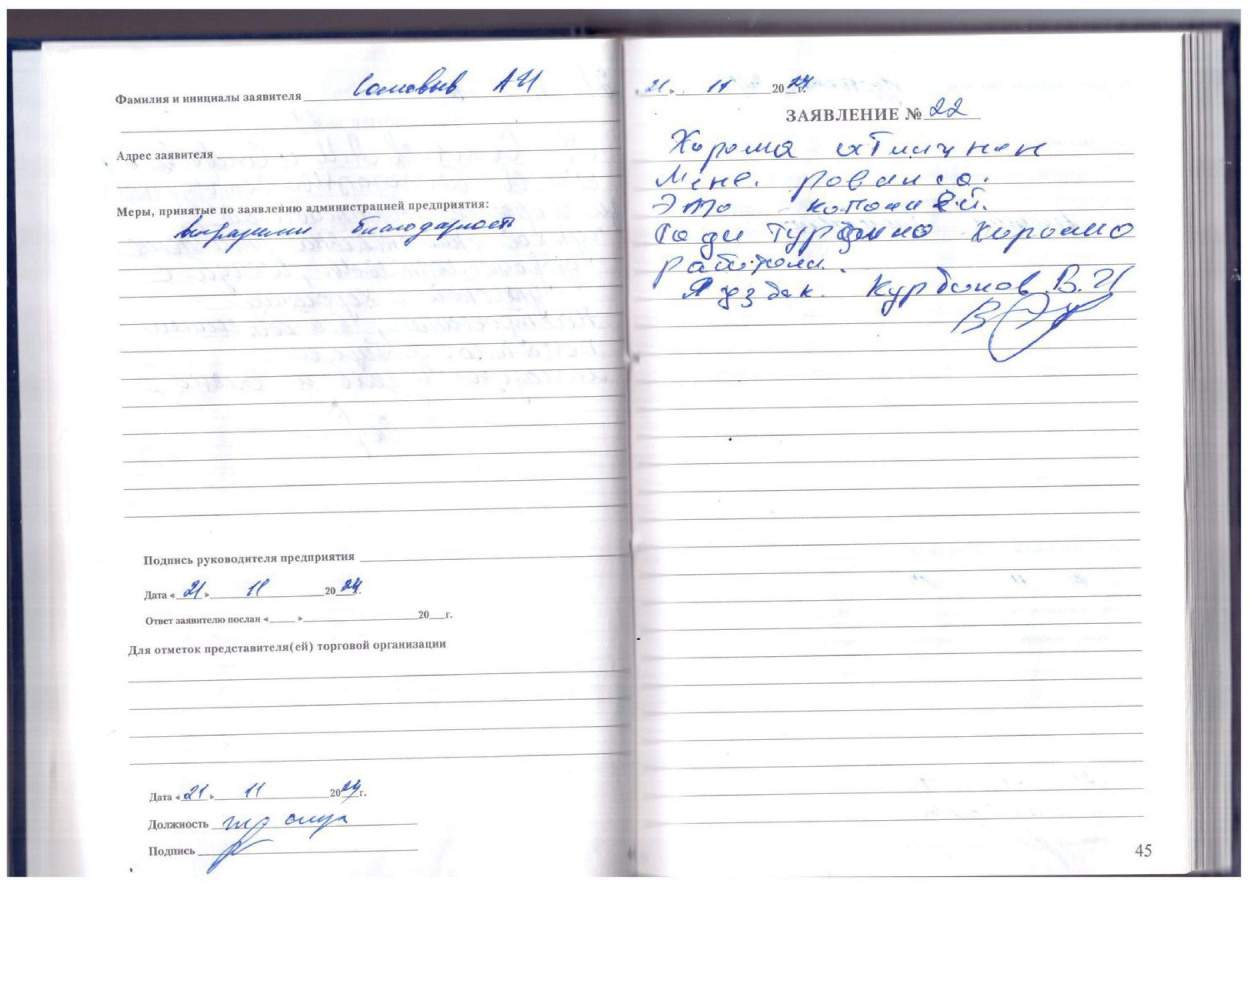 Фамилия и инициалы заявителя Соловьев АИ
Адрес заявителя
Меры, принятые по заявлению администрацией предприятия:
выразили благодарность
Подпись руководителя предприятия
Дата « 21 » 11 20 24
Ответ заявителю послан « » 20 г.
Для отметок представителя(ей) торговой организации
Дата « 21 » 11 20 24 г.
Должность
Подпись
21 » 11 20 24 г.
ЗАЯВЛЕНИЕ № 22
Хорошо
Мене.
Это
хорошо
Я узбек. Курбонов В.И
45